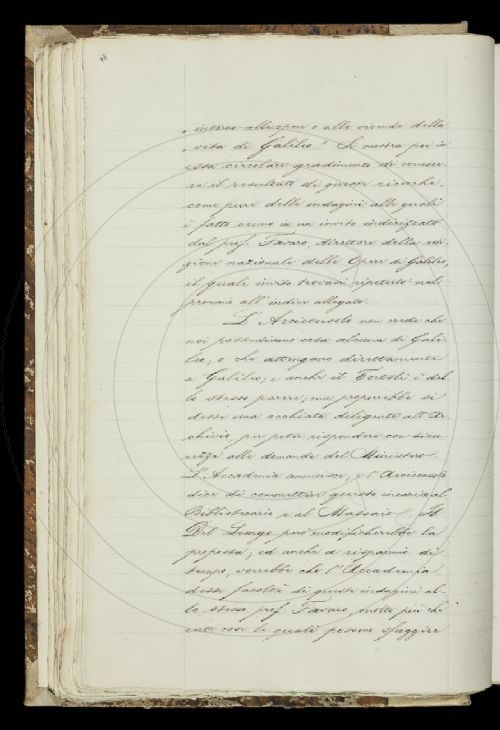 „ intorno alle opere o alle vicende della
„ vita di Galileo." Si mostra poi in
essa circolare gradimento di conosce-
re il resultato di queste ricerche,
come pure delle indagini alle quali
è fatto cenno in un invito indirizzato
dal prof. Favaro, direttore della edi-
zione nazionale delle Opere di Galileo,
il quale invito trovasi ripetuto nel
proemio all'indice allegato.
L'Arciconsolo non crede che
noi possediamo cosa alcuna di Gali-
leo, o che attengano direttamente
a Galileo; e anche il Tortoli è del-
lo stesso parere; ma proporrebbe si
desse una occhiata diligente all'Ar-
chivio, per poter rispondere con sicu-
rezza alle domande del Ministero.
L'Accademia annuisce, e l'Arciconsolo
dice di commettere questo incarico al
Bibliotecario e al Massaio. Il
Del Lungo però modificherebbe la
proposta, ed anche a risparmio di
tempo, vorrebbe che l'Accademia
desse facoltà di queste indagini al-
lo stesso prof. Favaro, molto più che
certe cose le quali possono sfuggire